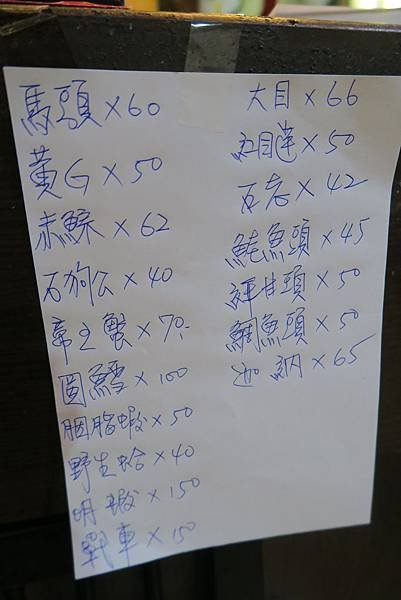 馬頭×60
黃G×50
赤鯮×62
石狗公×40
帝王蟹×70
圓鱈×100
胭脂蝦×50
野生蛤×40
明蝦×150
戰車×150
大目×66
紅目蓮×50
石老×42
鮭魚頭×45
紅甘頭×50
鯛魚頭×50
迦納×65